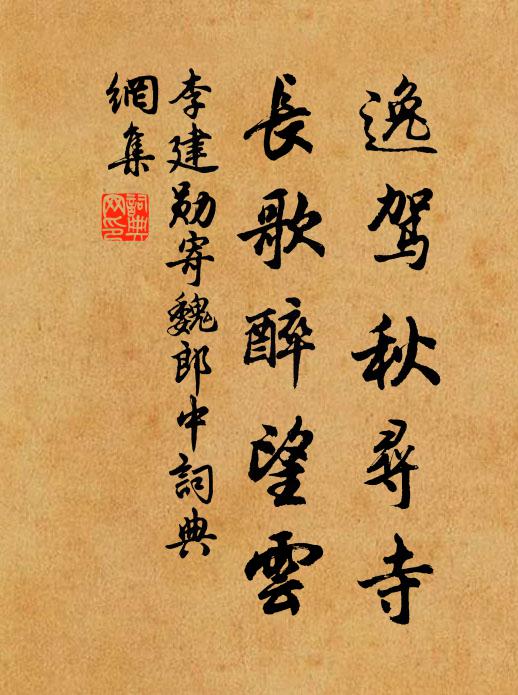 逸駕秋尋寺
長歌醉望雲
李建勛寄魏郎中詞典
網集
詞典網印